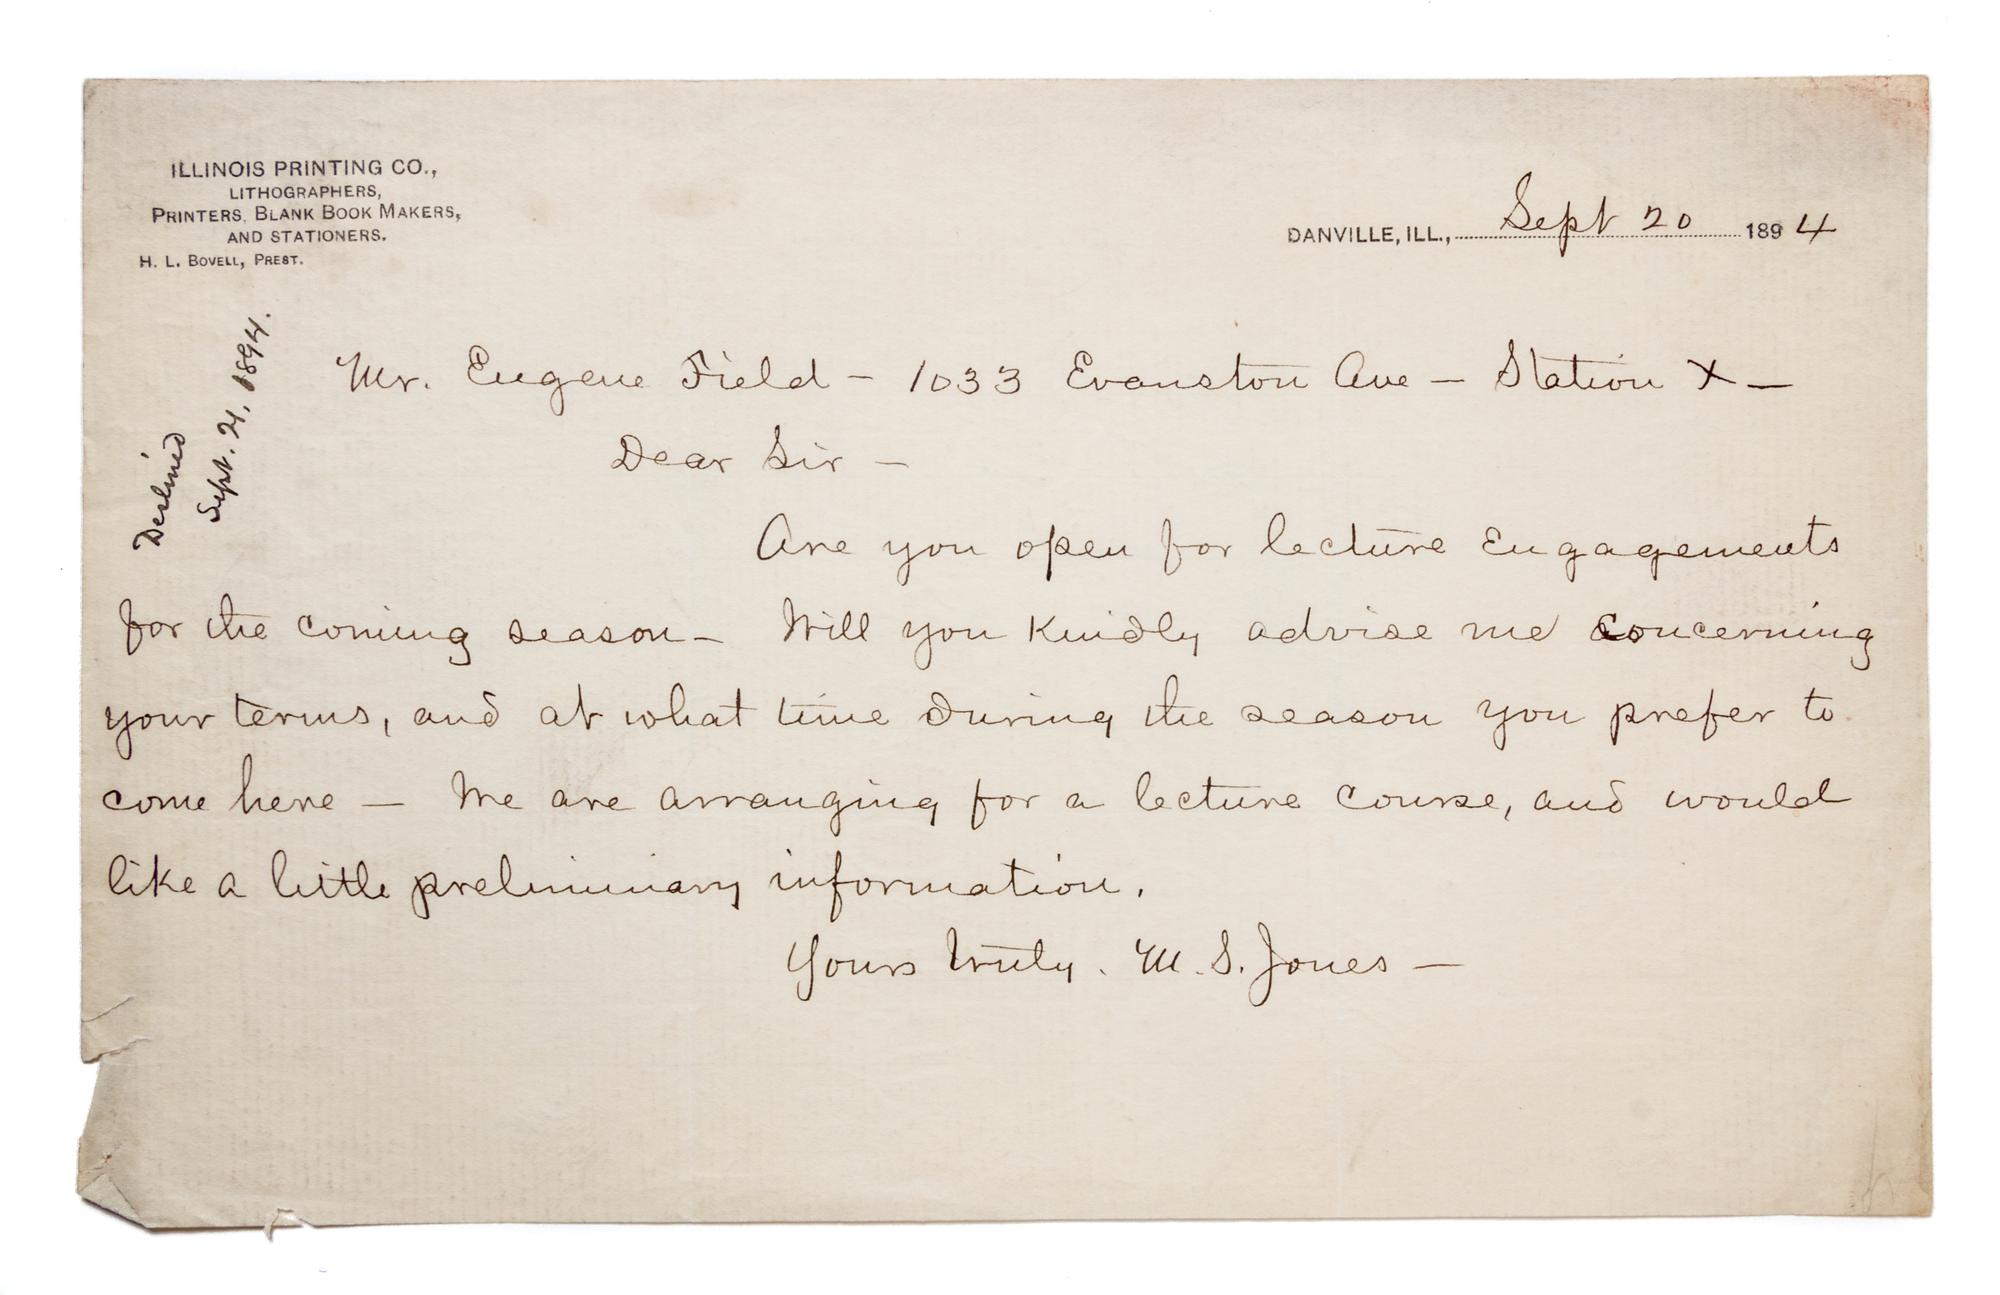 ILLINOIS PRINTING CO.,
LITHOGRAPHERS,
PRINTERS, BLANK BOOK MAKERS,
AND STATIONERS.
H. L. BOVELL, PREST.
DANVILLE, ILL., Sept 20 1894
Declined
Sept. 21, 1894.
Mr. Eugene Field – 1033 Evanston Ave – Station X –
Dear Sir –
Are you open for lecture Engagements
for the coming season – Will you Kindly advise me concerning
your terms, and at what time during the season you prefer to
come here – We are arranging for a lecture course, and would
like a little preliminary information.
Yours truly. M. S. Jones –